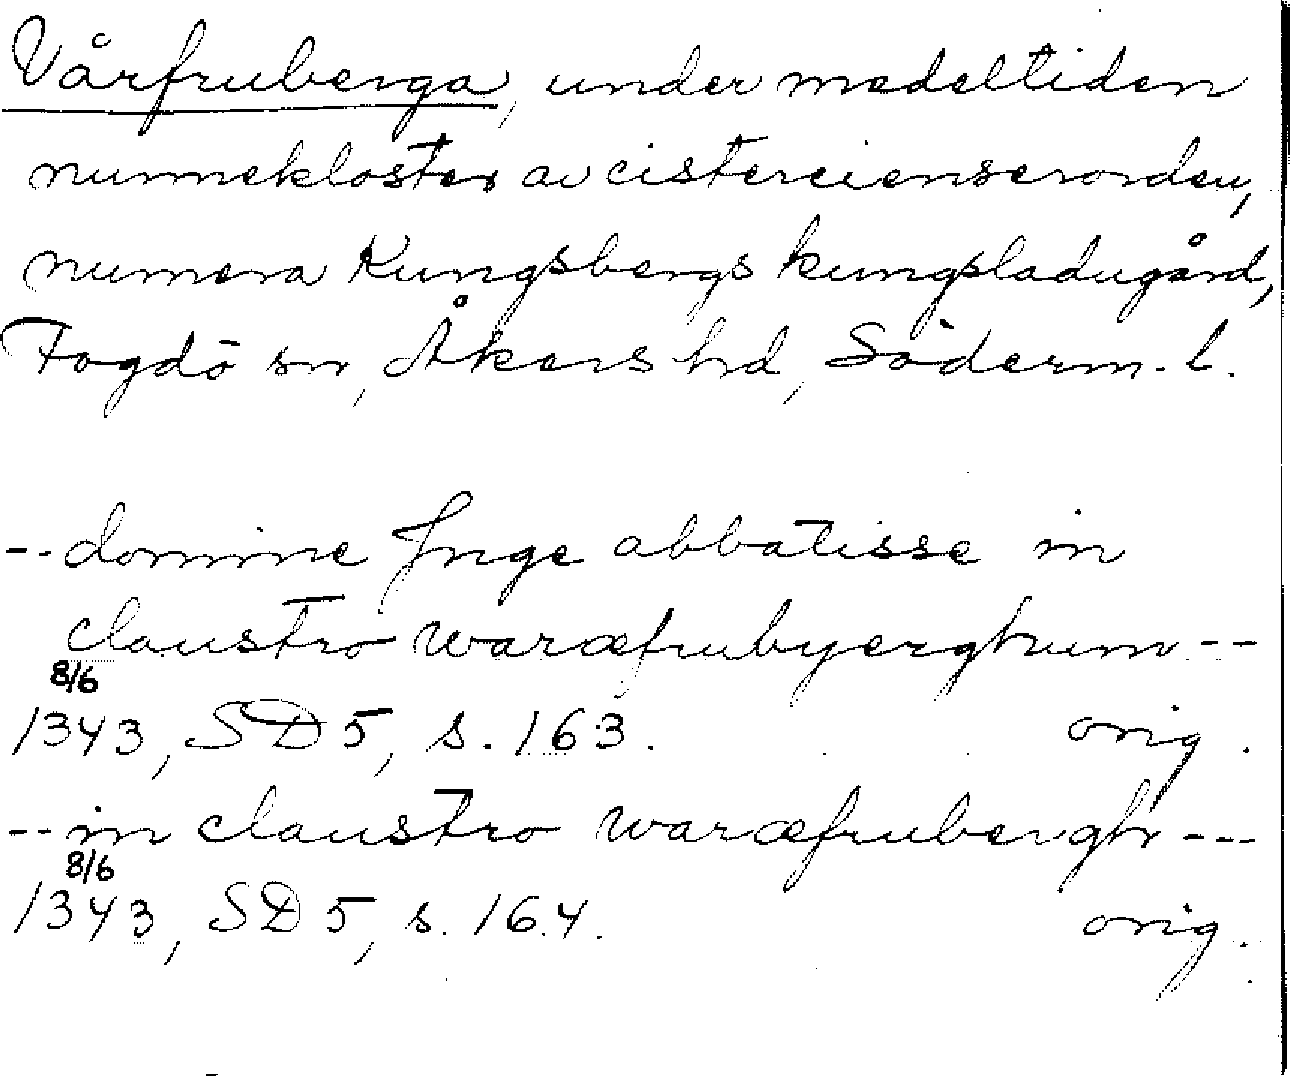 Vårfruberga, under medeltiden
nunnekloster av cistercienserorden,
numera Kungsbergs kungsladugård,
Fogdö sn, Åkers hd, Söderm. l.
-- domine Inge abbatisse in
claustro waræfrubyerghum --
8/6
1343, SD 5, s. 163. orig.
-- in claustro waræfrubergh ---
8/6
1343, SD 5, s. 164. orig.